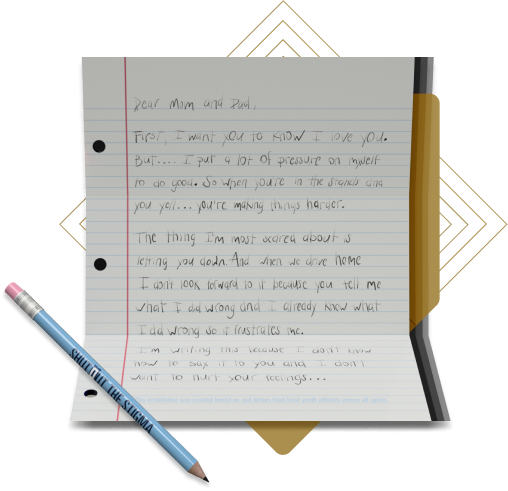 Dear Mom and Dad,
First, I want you to know I love you.
But.... I put a lot of pressure on myself
to do good. So when you're in the stands and
you yell... you're making things harder.
The thing I'm most scared about is
letting you down. And when we drive home
I don't look forward to it because you tell me
what I did wrong and I already know what
I did wrong so it frustrates me.
I'm writing this because I don't know
how to say it to you and I don't
want to hurt your feelings...
THE STIGMA